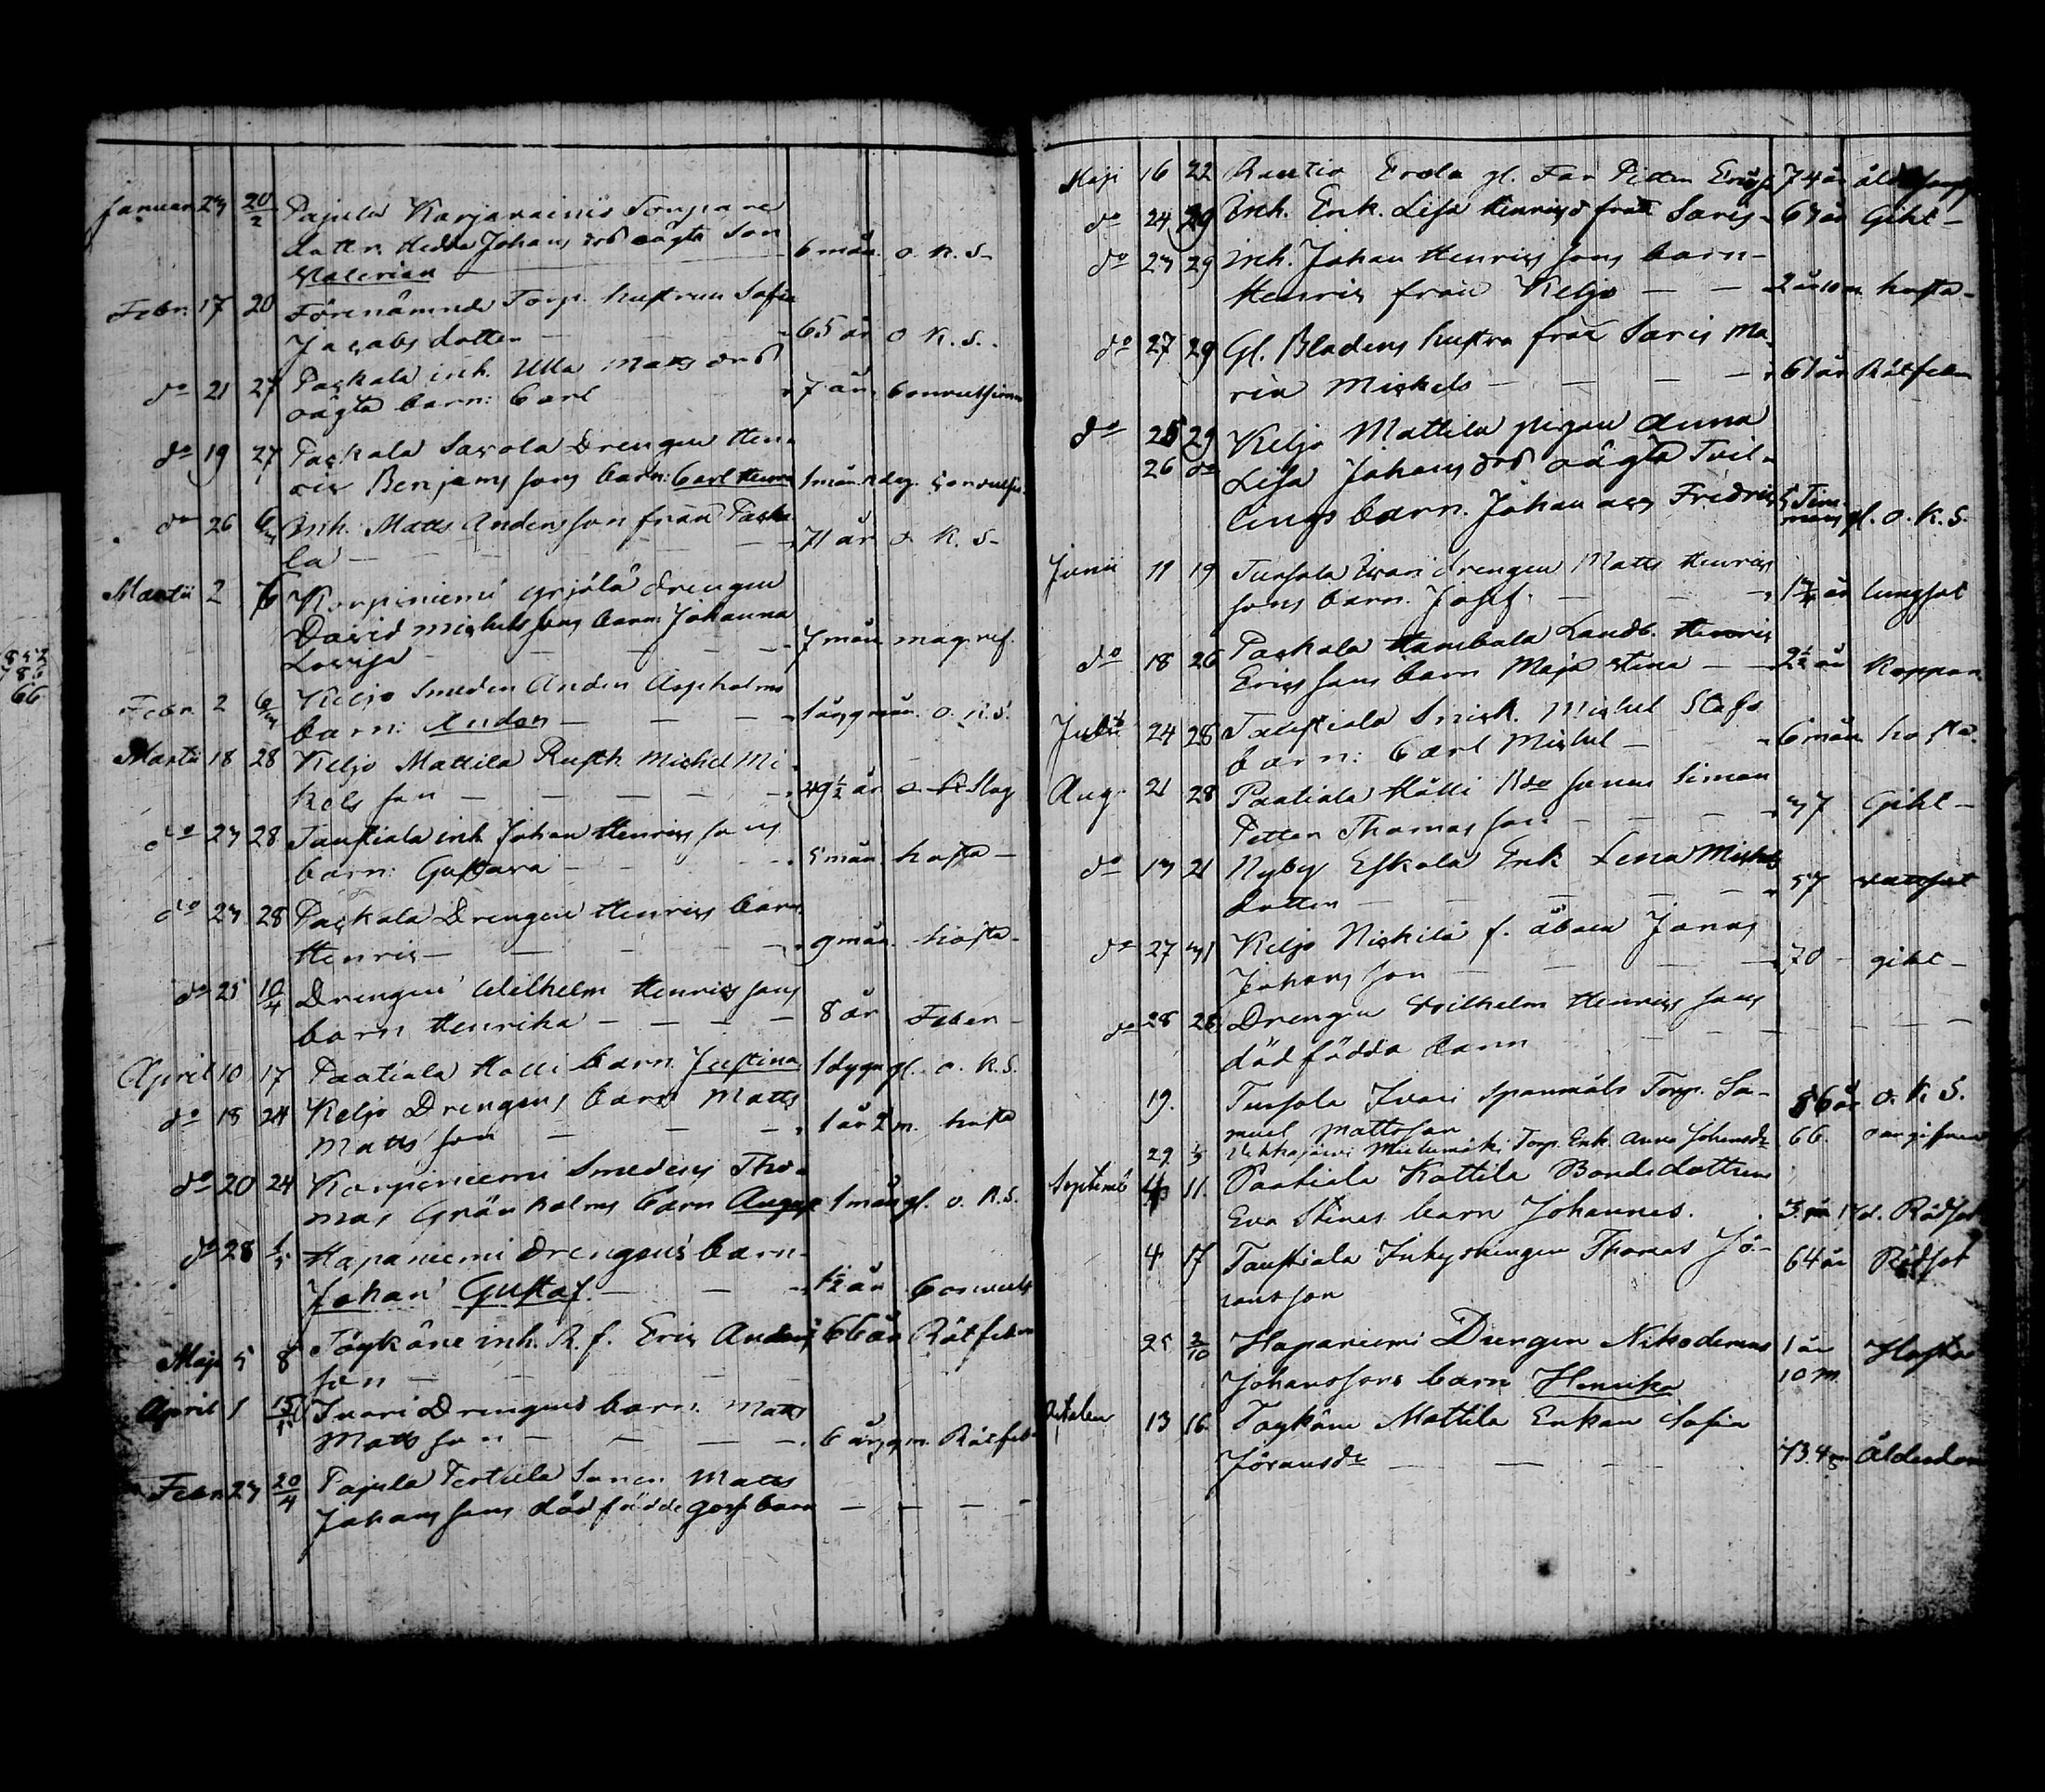 Januari 23 20/2 Pajula Karjarainio Torpare
dattr. Hedda Johans drs oägta Son
Valerian — 6 mån. o. k. S.
Febr. 17 20 Förenämnde Torp. hustrun Sofia
Jacobs dotter — 65 år o. k. S.
do 21 27 Paskala inh. Ulla Matts drs
oägta barn: Carl — 7 år, Convulsion
do 19 27 Paskala Savola Drengen Hen-
ric Benjams sons barn: Carl Henric 1 mån. n dag. Convuls.
do 26 6/3 Inh. Matts Andersson från Paska
la — 71 år o. K. S.
Martii 2 6 Korpiniemi Yrjölä drengen
David Michels sons barn Johanna
Lovisa — 7 mån mag. ref.
Febr. 2 6/3 Keljo Smeden Anders Aspholms
barn: Anders — 1 år 9 mån. o. K. S.
Martii 18 28 Keljo Mattila Rusth. Michel Mi
kels son — 49½ år o. k. Slag
do 23 28 Taustiala inh. Johan Henrics sons
barn: Gustava — 5 mån. hosta —
do 23 28 Paskala Drengen Henrics barn
Henric — 9 mån. hosta —
do 25 10/4 Drengen Wilhelm Henrics sons
barn Henrika — 8 år Feber —
April 10 17 Paatiala Halli barn. Justina 1 dygn gl. o. k. S.
do 18 24 Keljo Drengens barn Matts
Matts son — 1 år 2 m. hosta
do 20 24 Korpiniemi Smedens Tho-
mas Grönholms barn August 1 mån gl. o. K. S.
do 28 1/5 Hapaniemi drengens barn
Johan Gustaf — 1½ år Convuls
Maji 5 8 Töykäne inh. R. f. Eric Anders 66 år Rötfeber
son —
April 1 15/5 Ivari Drengens barn. Matts
Matts son — 6 år 9 m. Rötfeb.
Febr. 23 20/4 Pajula Perttula Sonen Matts
Johans sons död födde goss barn — — — —
Maji 16 22 Rautio Erola gl. Far Petter Erics 74 år
do 24 29 Inh. Enk. Lisa Henrics d från Saris — 67 år Giht —
do 23 29 Inh. Johan Henrics sons barn —
Henric från Keljo — — 2 år 10 m. hosta —
do 27 29 Gl. Bladens hustru från Saris Ma-
ria Michels — — — — 61 år Rötfeber
do 25 29 Keljo Mattila pigan Anna
26 do Lisa Johans drs oägta Tvil-
lings barn. Johan och Fredric 5 Tim. gl. o. K. S.
Junii 11 19 Tursola Ivari drengen Matts Henrics
sons barn. Josef. — — 1¾ år lungsot
do 18 26 Paskala Hambala Landb. Henric
Erics sons barn Maja Stina — — 2½ år Koppor
Julii 24 28 Taustiala Snick. Michel Stafs
barn: Carl Michel — 6 mån hosta
Aug. 21 28 Paatiala Hälli Bde sonen Simon
Petter Thomas son — — — 37 Giht —
do 13 21 Nyby Eskola Enk Lena Michels
dotter — — — 57 vattsot
do 27 31 Keljo Nickilä f. åboen Jonas
Johans son — — 70 — giht —
do 28 28 Drengen Wilhelm Henrics sons
död födda barn — — — —
19. Tursola Ivari Spanmåls Torp. Sa-
muel Mattsson 86 år o. k. S.
29 Torp. Enk. Anna Johansdr 66. oangifven
Septemb 4 11. Paatiala Kottila Bonde dottren
Eva Stinas barn Johannes. Rödsot
4 17 Taustiala Inhysdrengen Thomas Jö-
ransson 64 år Rödsot
25 2/10 Hapaniemi Drengen Nikodemus 1 år Hosta
Johanssons barn Henrika 10 m
October 13 16. Töykäne Mattila Enkan Sofia
Jöransdr — — — — 73. 4 m Ålderdom